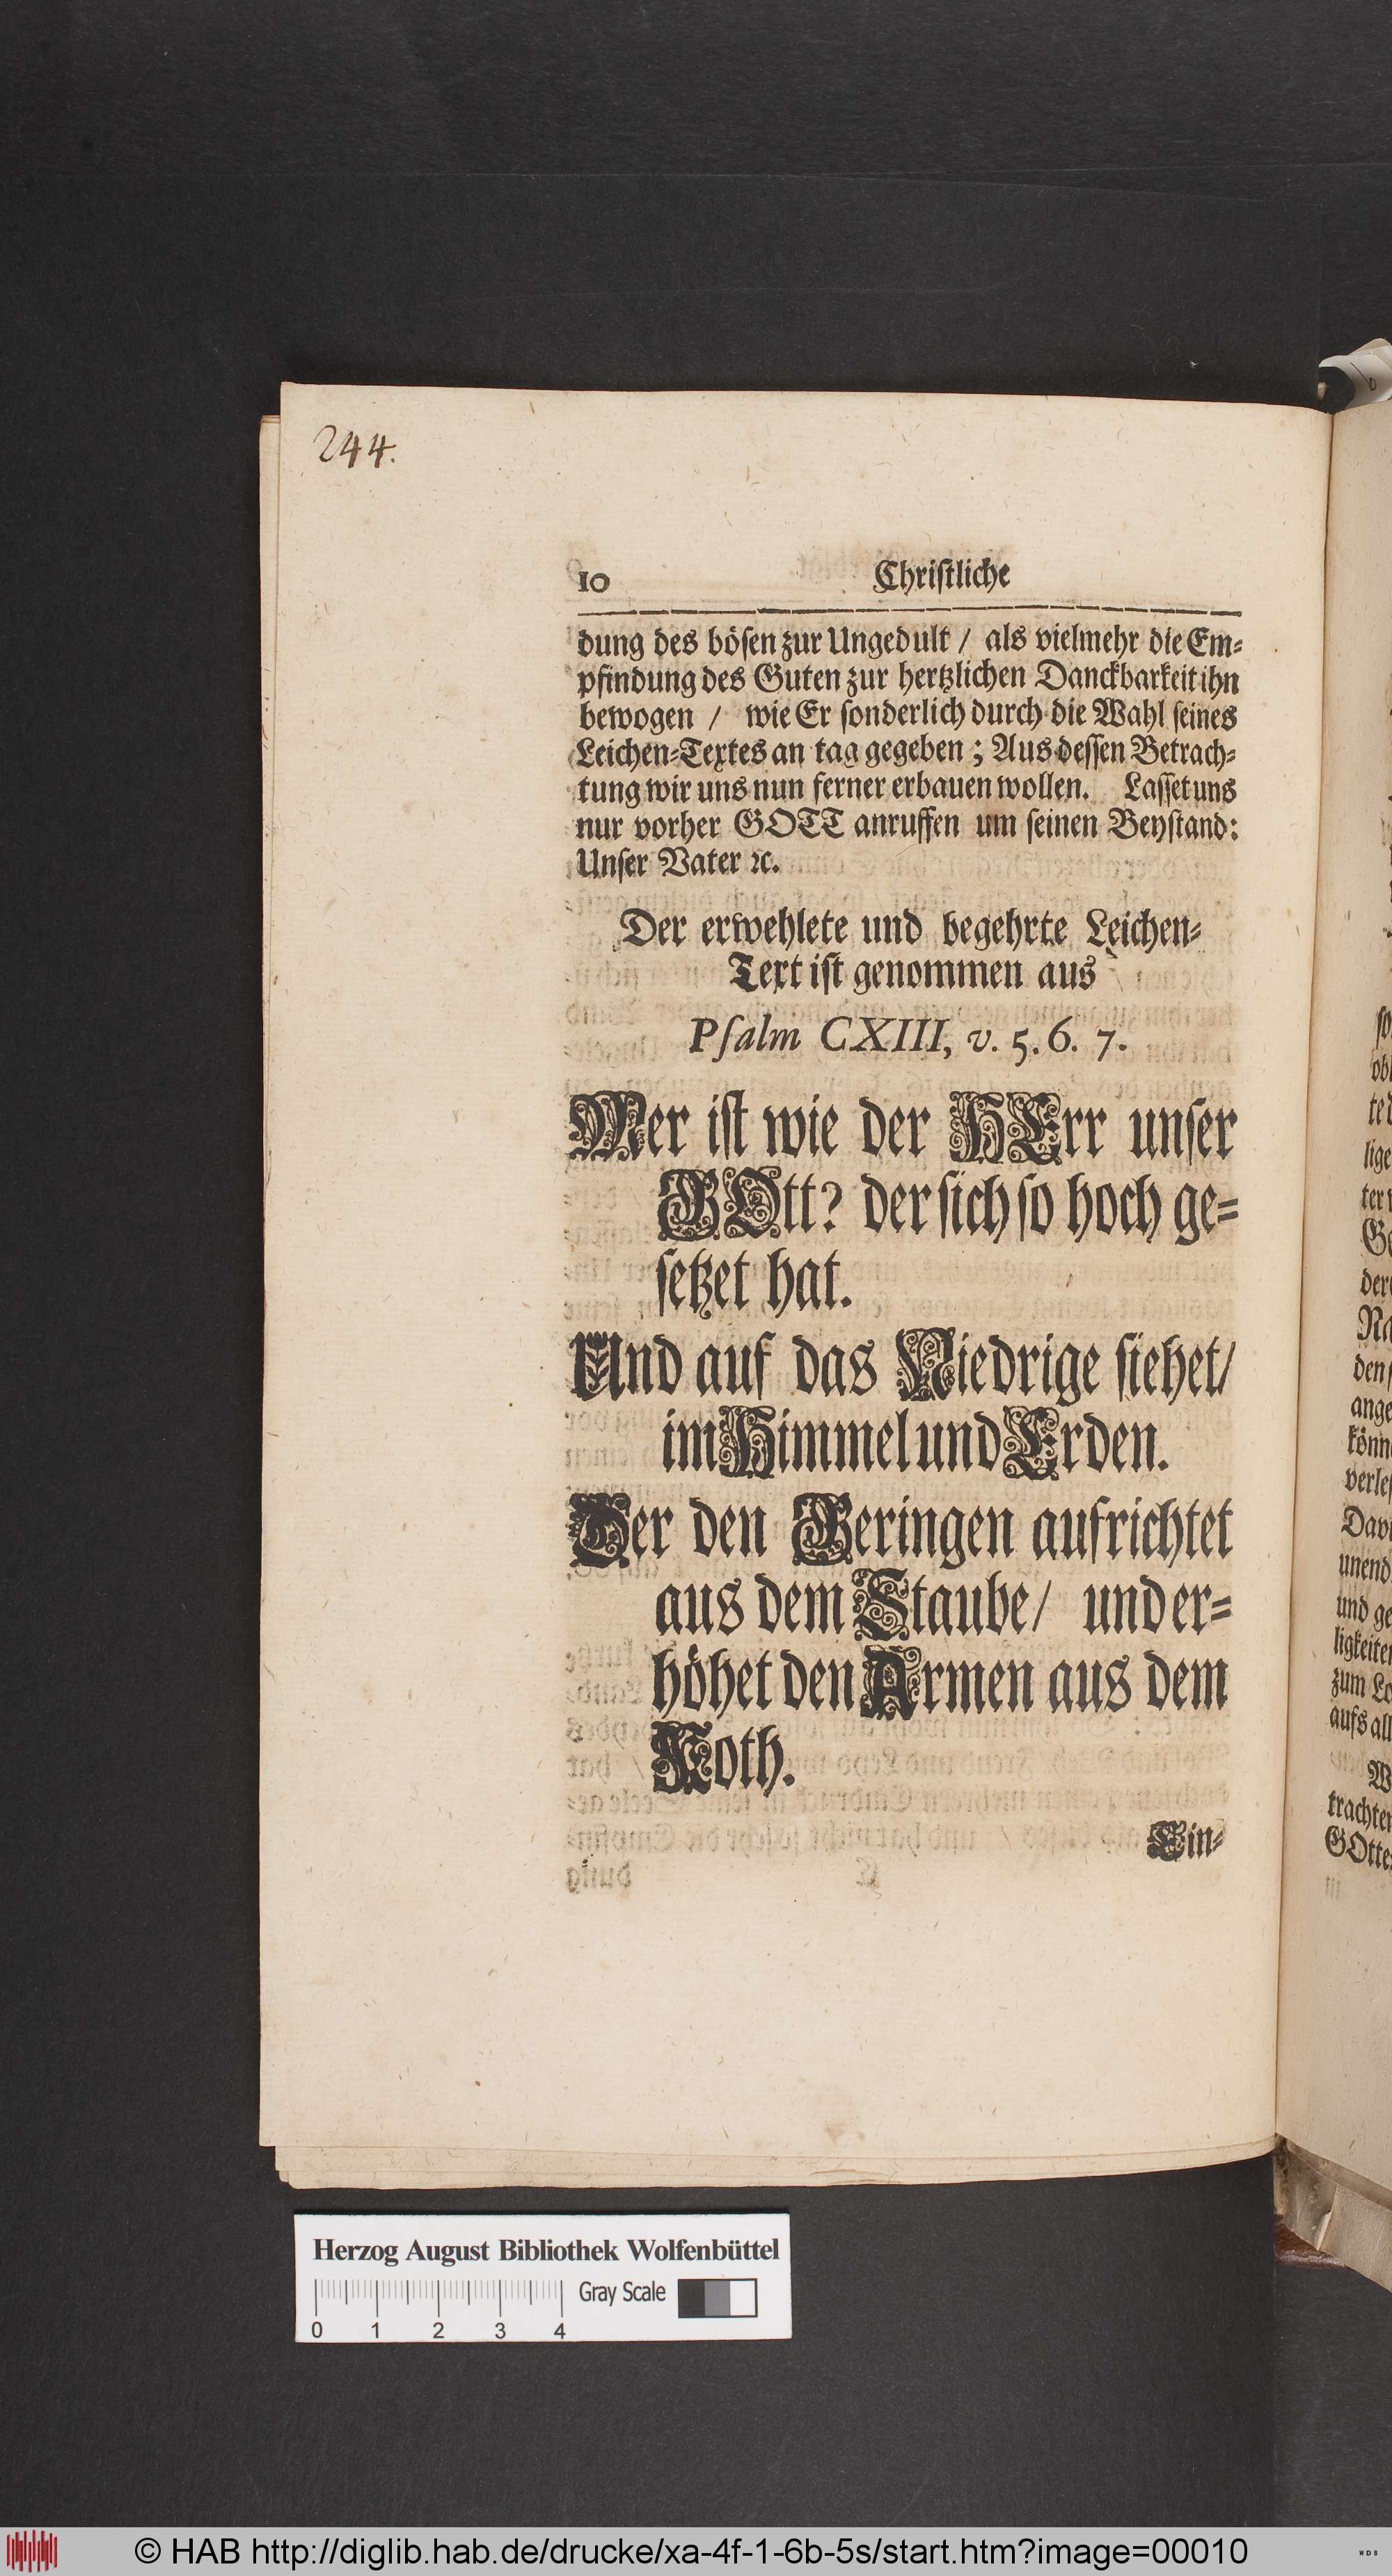 244.
10 Christliche
dung des bösen zur Ungedult / als vielmehr die Em-
pfindung des Guten zur hertzlichen Danckbarkeit ihn
bewogen / wie Er sonderlich durch die Wahl seines
Leichen-Textes an tag gegeben ; Aus dessen Betrach-
tung wir uns nun ferner erbauen wollen. Lasset uns
nur vorher GOTT anruffen um seinen Beystand:
Unser Vater ꝛc.
Der erwehlete und begehrte Leichen-
Text ist genommen aus
Psalm CXIII, v. 5. 6. 7.
Wer ist wie der HErr unser
GOtt? der sich so hoch ge-
setzet hat.
Und auf das Niedrige siehet/
im Himmel und Erden.
Der den Geringen aufrichtet
aus dem Staube/ und er-
höhet den Armen aus dem
Koth.
Ein-
so
obl
lige
Ge
dere
Na
den
ange
könn
verles
Davi
unend
und ge
ligkeiten
zum Lo
aufs all
W
trachten
GOtte
Herzog August Bibliothek Wolfenbüttel
Gray Scale
0 1 2 3 4
© HAB http://diglib.hab.de/drucke/xa-4f-1-6b-5s/start.htm?image=00010
WDB